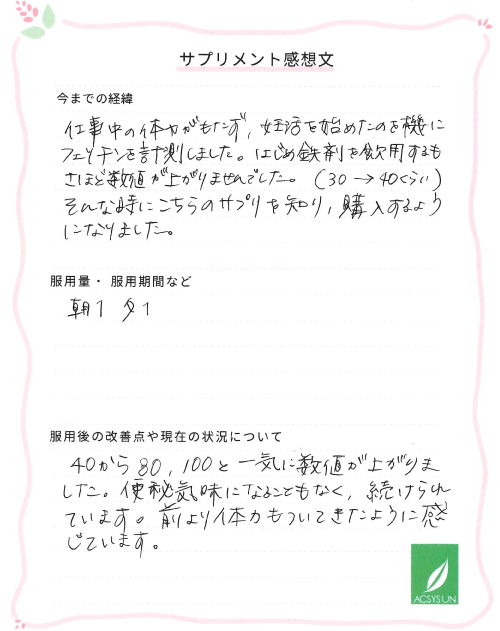 サプリメント感想文
今までの経緯
仕事中の体力がもたず、妊活を始めたのを機に
フェリチンを計測しました。はじめ鉄剤を飲用するも
さほど数値が上がりませんでした。(30→40くらい)
そんな時にこちらのサプリを知り、購入するよう
になりました。
服用量・服用期間など
朝1 夕1
服用後の改善点や現在の状況について
40から80,100と一気に数値が上がりま
した。便秘気味になることもなく、続けられ
ています。前より体力もついてきたように感
じています。
ACSYSUN